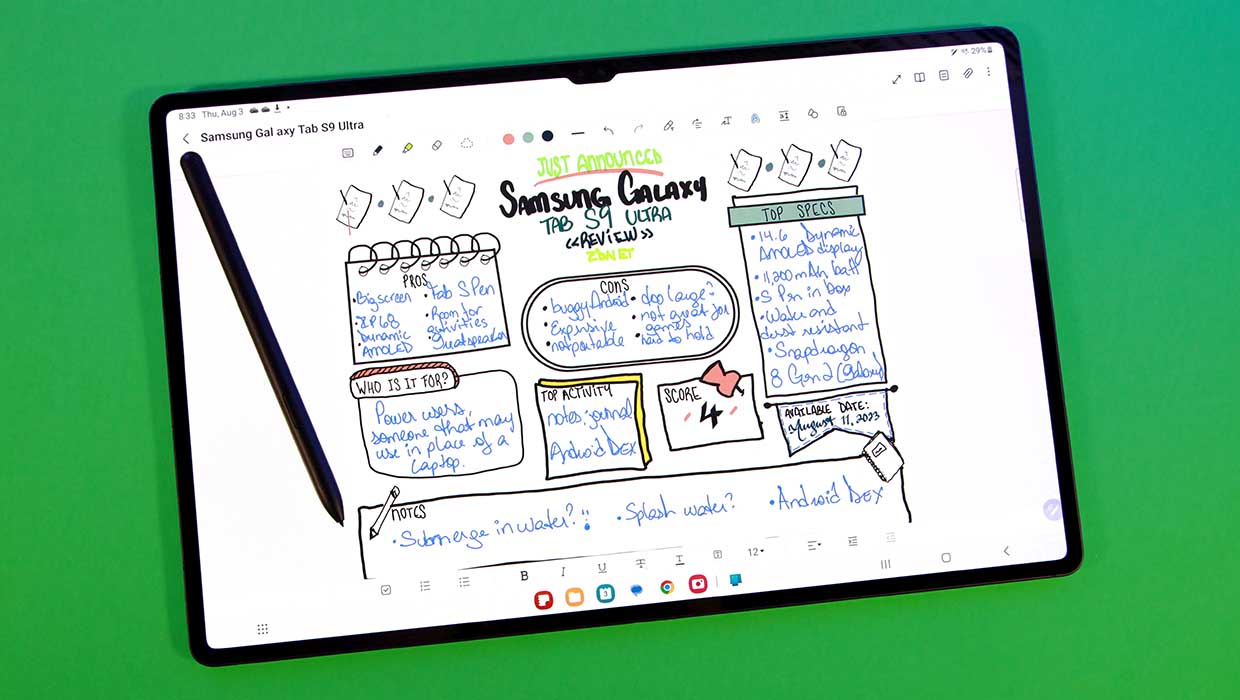 8:33 Thu, Aug 3
29%
Samsung Gal axy Tab S9 Ultra
JUST ANNOUNCED
SAMSUNG GALAXY
TAB S9 ULTRA
<<REVIEW>>
ZDNET
PROS
• Big screen
• IP68
• Dynamic
AMOLED
• Tab S Pen
• Room for
activities
• Great speakers
CONS
• buggy Android
• Expensive
• not portable
• too large?
• not great for
games
• hard to hold
TOP SPECS
• 14.6 Dynamic
AMOLED display
• 11,200 mAh batt
• S Pen in box
• Water and
dust resistant
• Snapdragon
8 Gen 2 (Galaxy)
WHO IS IT FOR?
Power users,
someone that may
use in place of a
laptop.
TOP ACTIVITY
notes, journal
Android DEX
SCORE
4
AVAILABLE DATE:
August 11, 2023
NOTES
• Submerge in water?
• Splash water?
• Android DEX
B I U T T 12
3